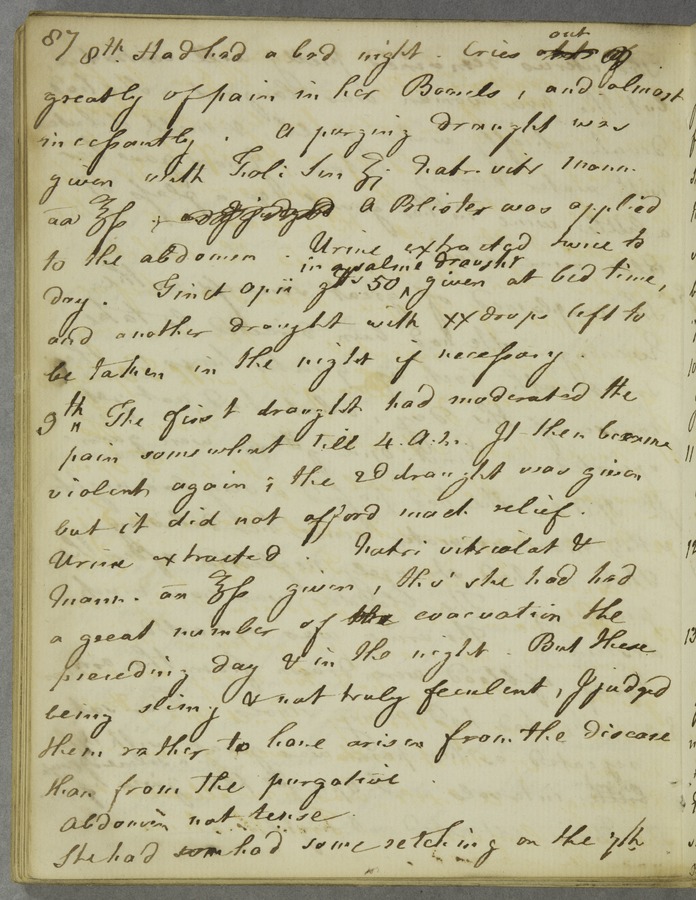 87 8th. Had had a bad night. Cries out
greatly of pain in her Bowels, and almost
incessantly. A purging draught was
given with Fol: Sen ʒj Natr. vitr mann.
aa ℥ß; A Blister was applied
to the abdomen. Urine extracted twice to
day. Tinct Opii gtts 50, in a saline draught given at bed time,
and another draught with xx drops left to
be taken in the night if necessary.
9th The first draught had moderated the
pain somewhat till 4. A.M. It then became
violent again; the 2d draught was given
but it did not afford much relief.
Urine extracted. Natri vitriolat &
Mann. an ℥ß given, tho' she had had
a great number of evacuation the
preceding day & in the night. But these
being slimy & not truly feculent, I judged
them rather to have arisen from the disease
than from the purgative.
Abdomen not tense.
She had had some retching on the 7th